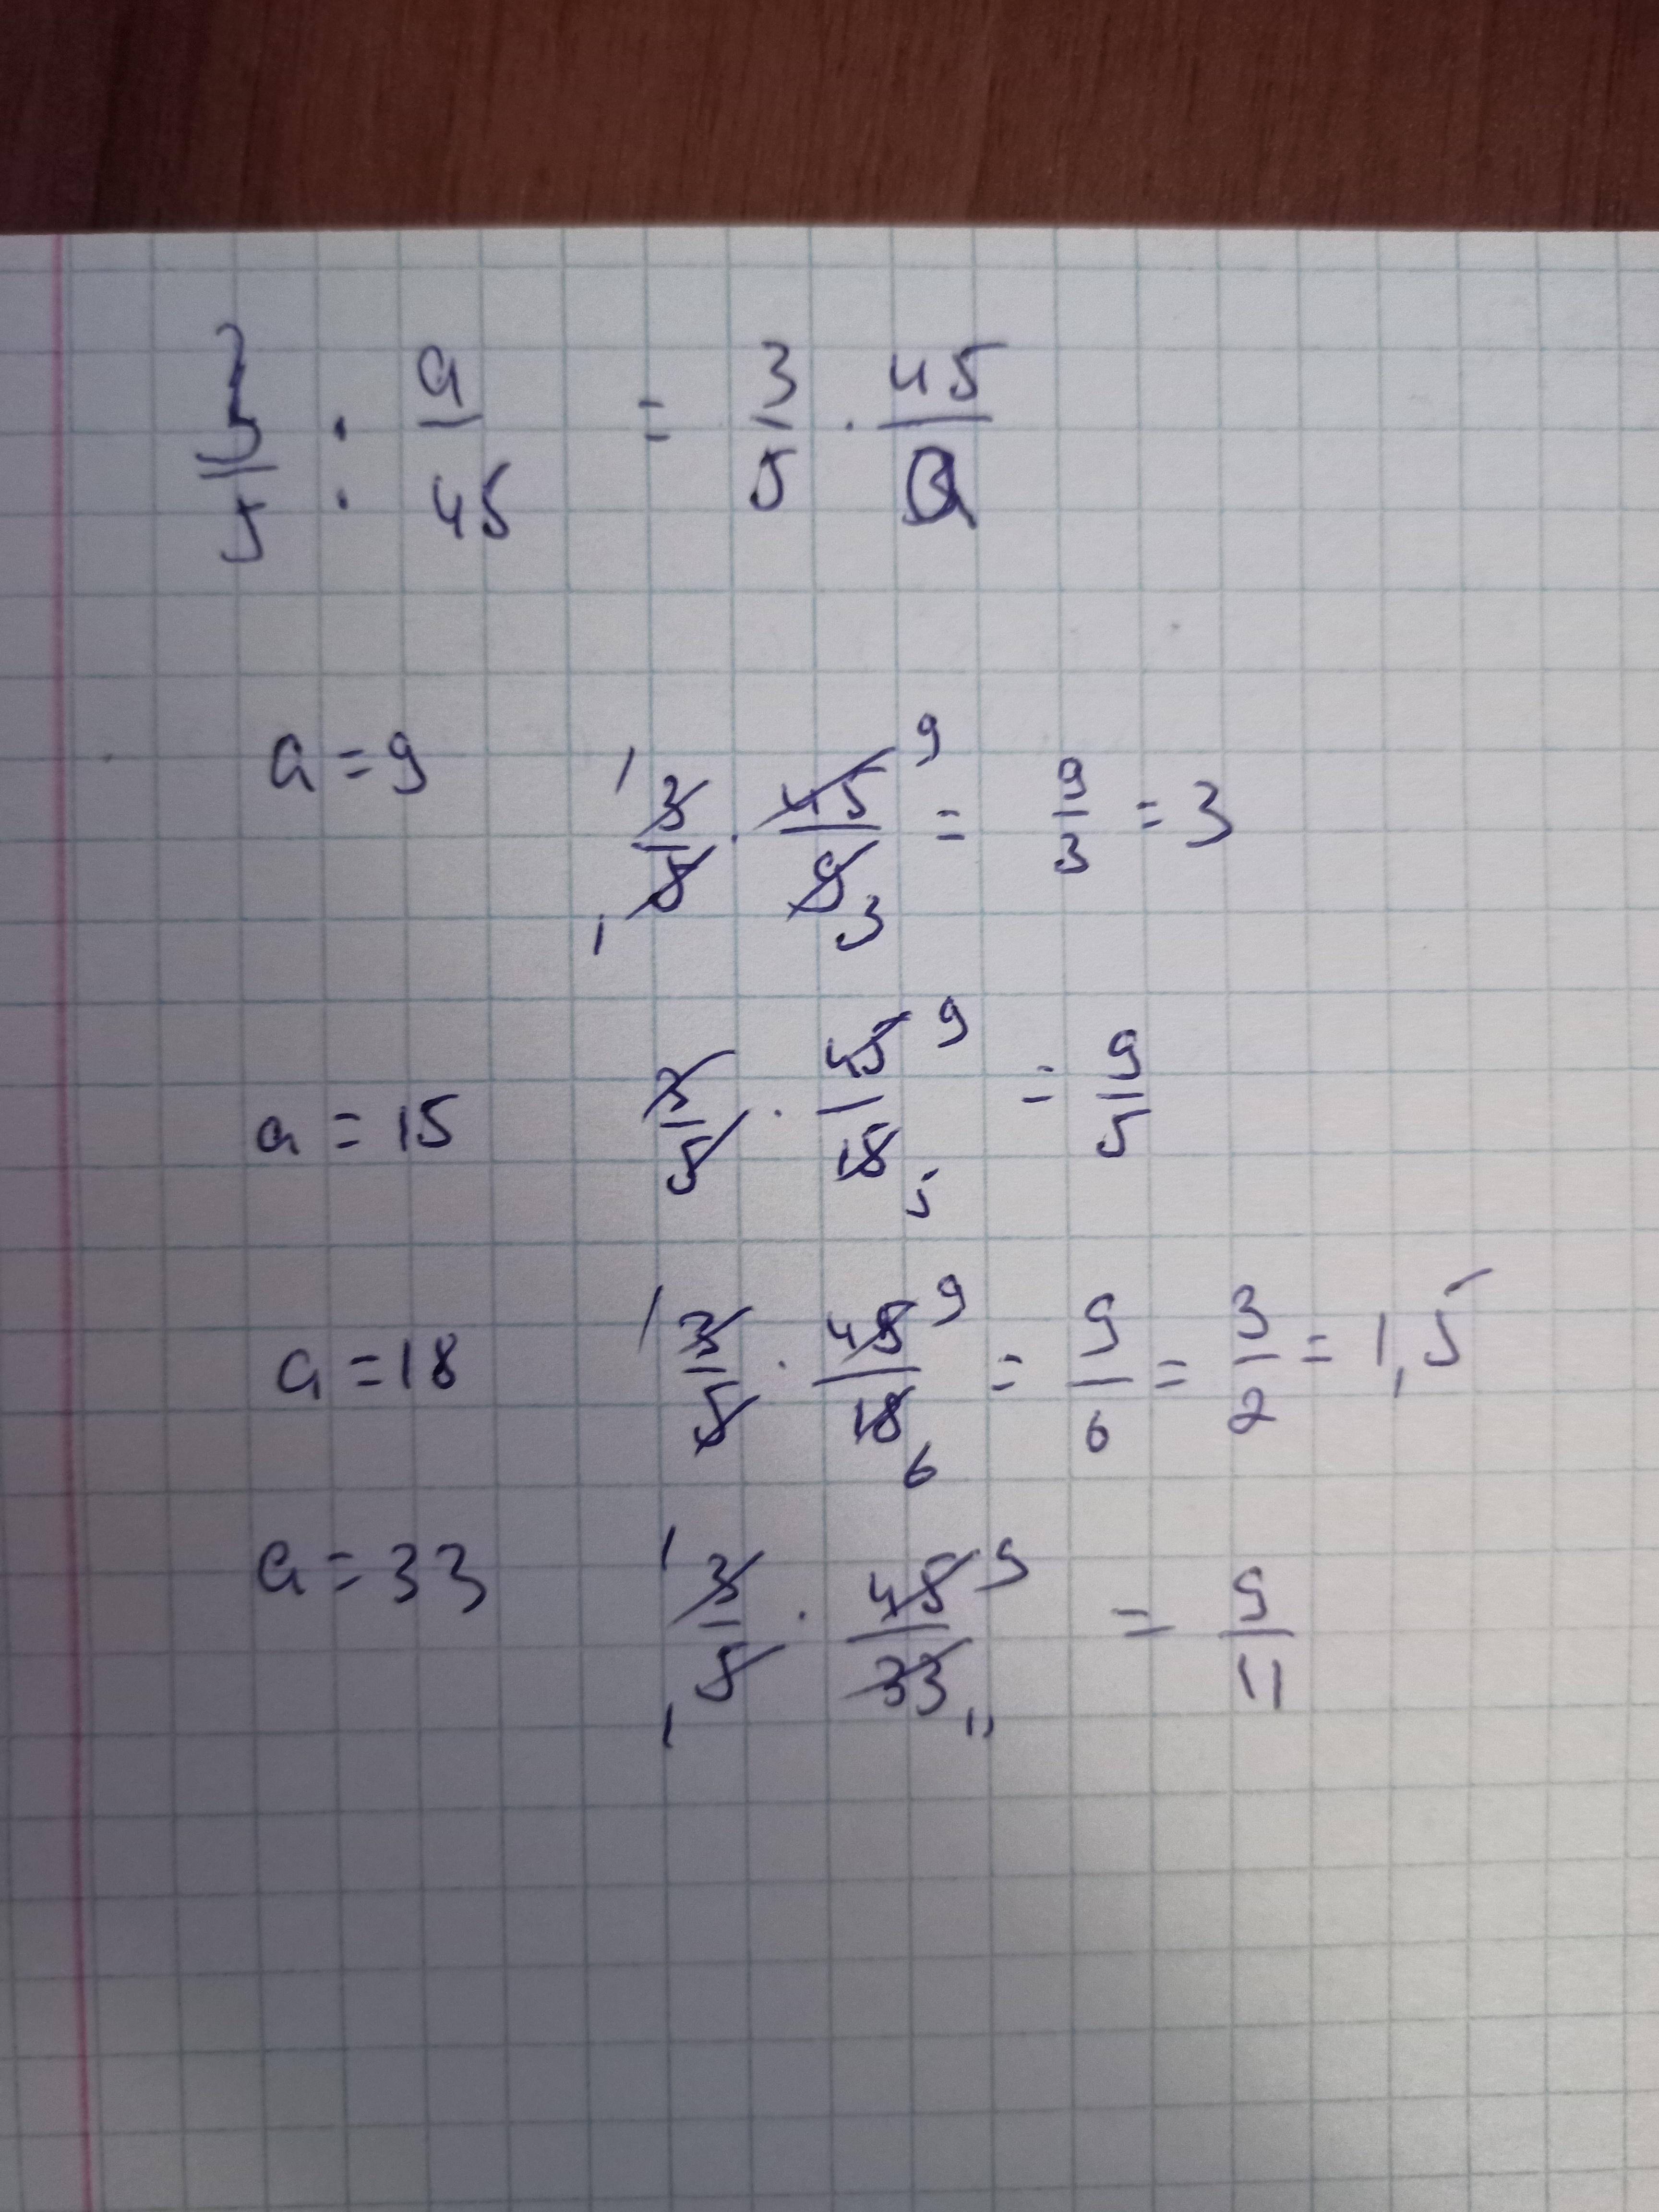 3/5 : a/45 = 3/5 · 45/a
a = 9 1 3/5 1 · 45/9 9 3 = 9/3 = 3
a = 15 3/5 · 45/15 9 5 = 9/5
a = 18 1 3/5 · 45/18 9 6 = 9/6 = 3/2 = 1,5
a = 33 1 3/5 1 · 45/33 9 11 = 9/11